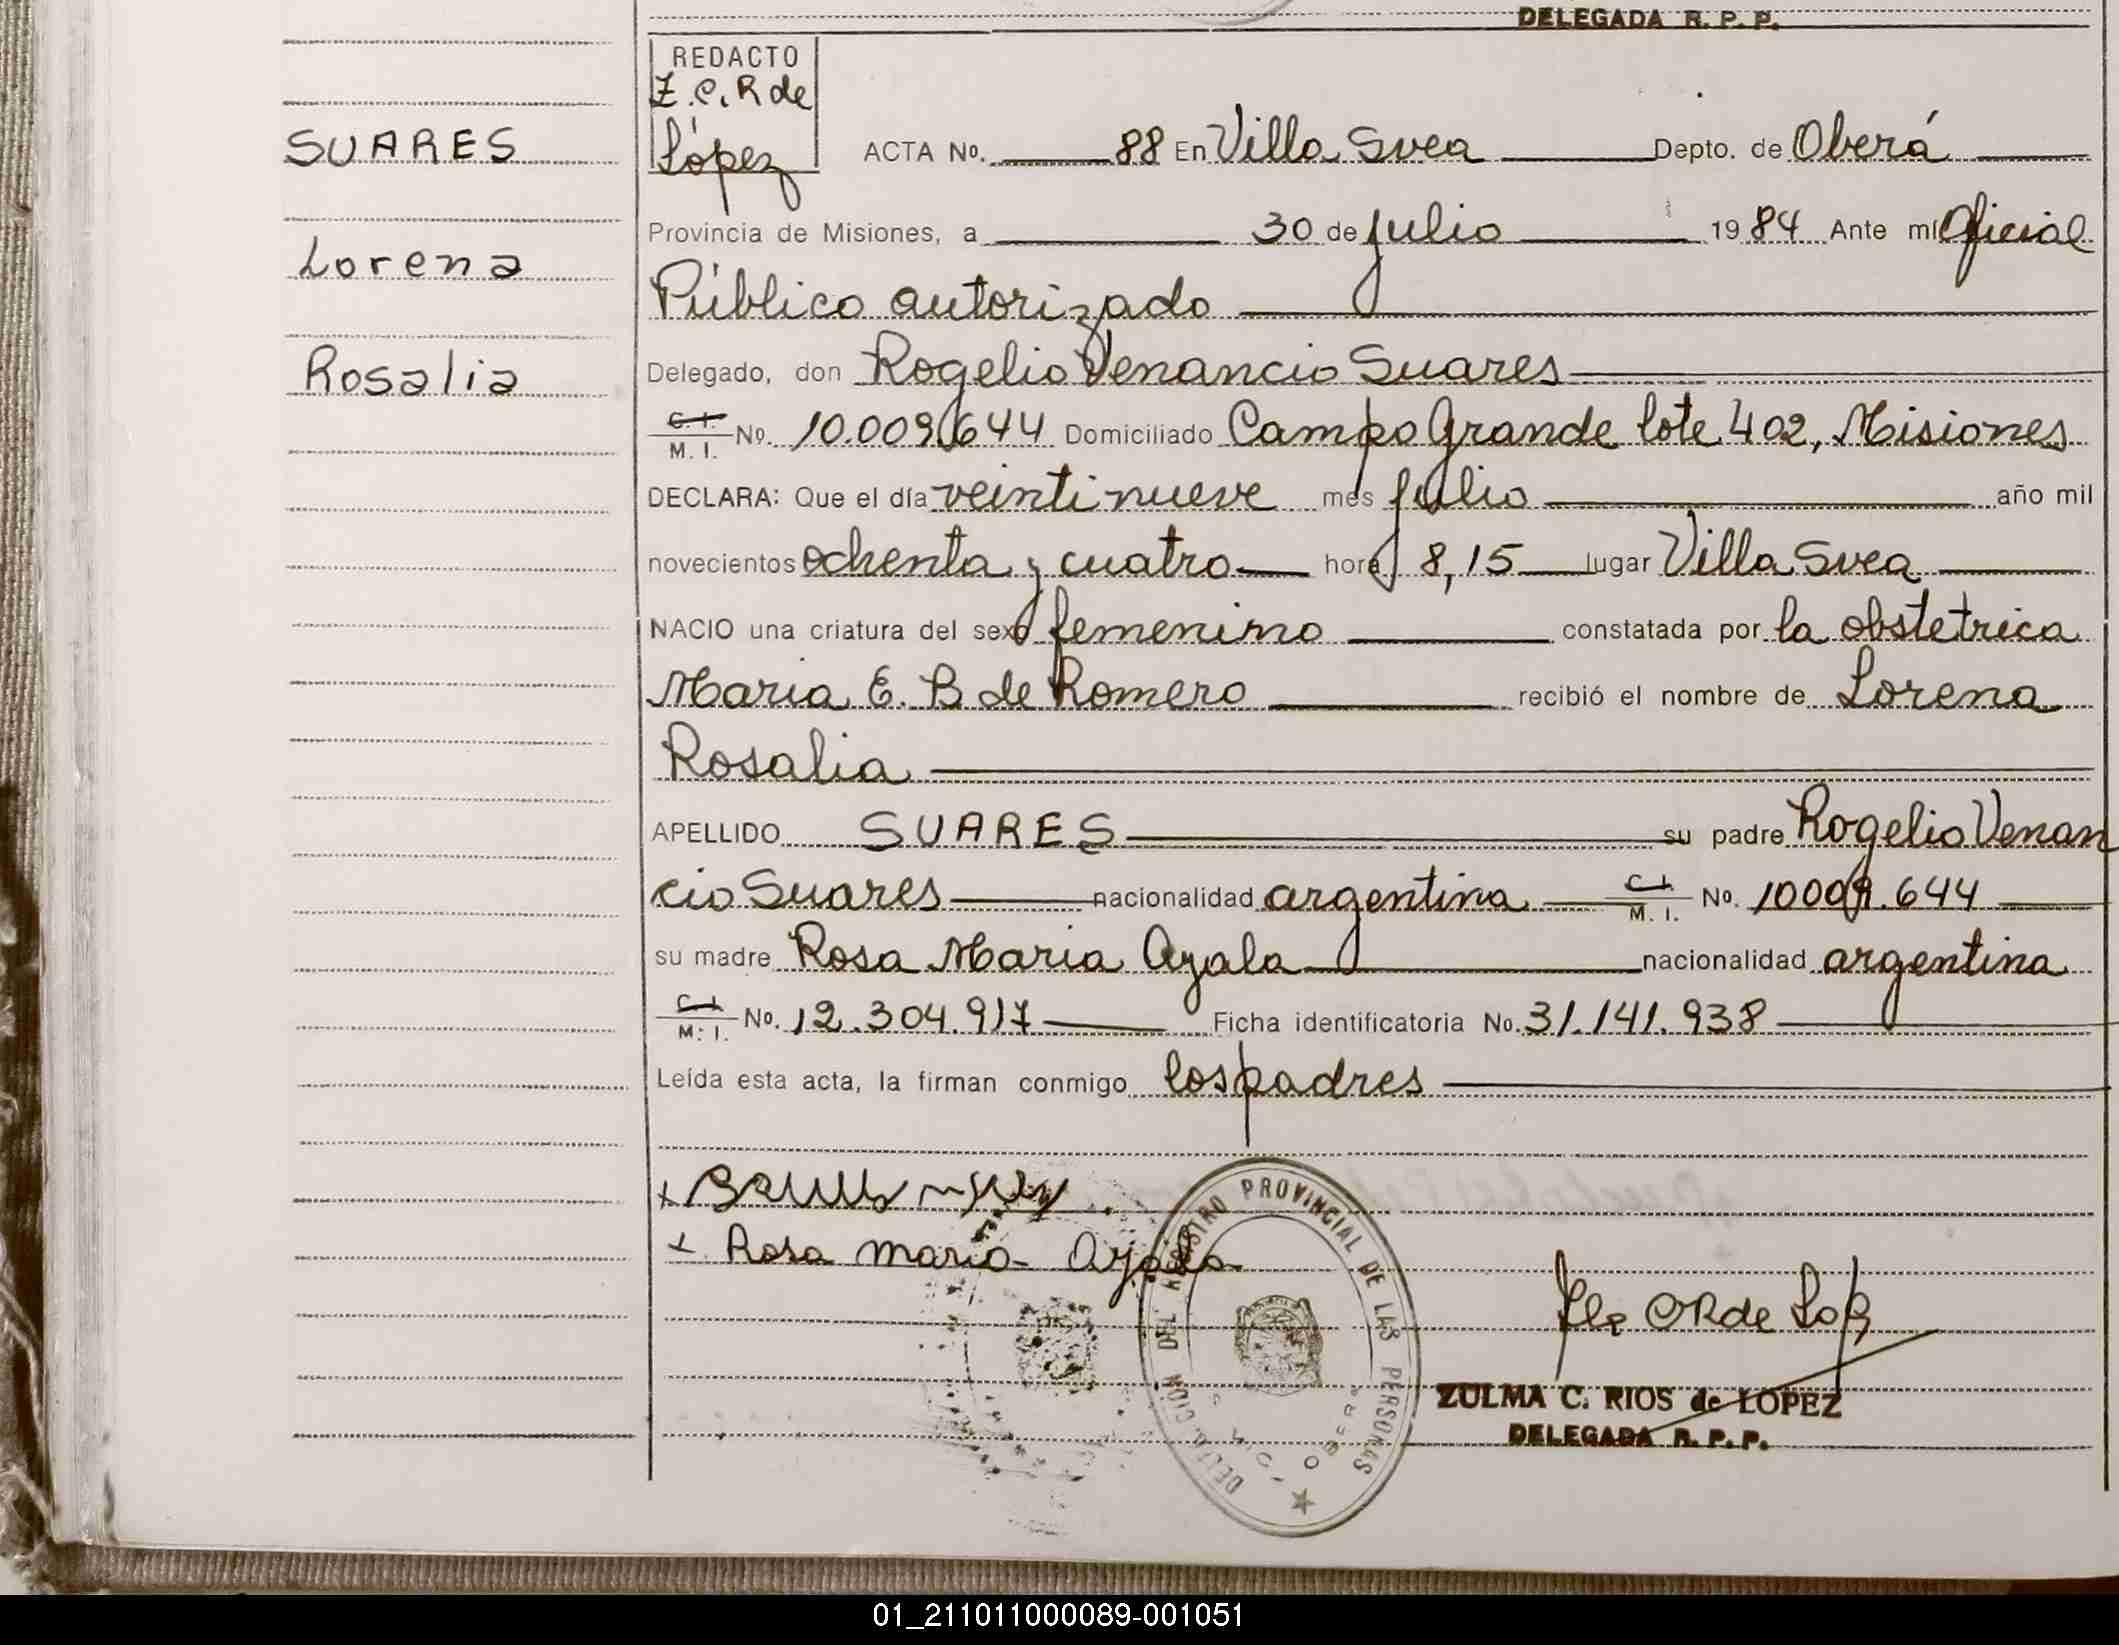 DELEGADA R. P. P.
REDACTO
Z. C. R de
López
SUARES
Lorena
Rosalia
ACTA No. 88 En Villa Svea Depto. de Oberá
Provincia de Misiones, a 30 de julio 1984 Ante mi Oficial
Público autorizado
Delegado, don Rogelio Venancio Suares
C. I. M. I. No. 10.009.644 Domiciliado Campo Grande lote 402, Misiones
DECLARA: Que el día veintinueve mes julio año mil
novecientos ochenta y cuatro hora 8,15 lugar Villa Svea
NACIO una criatura del sexo femenino constatada por la obstetrica
Maria E. B de Romero recibió el nombre de Lorena
Rosalia
APELLIDO SUARES su padre Rogelio Venan
cio Suares nacionalidad argentina C. I. M. I. No. 10009.644
su madre Rosa Maria Ayala nacionalidad argentina
C. I. M. I. No. 12.304.917 Ficha identificatoria No. 31.141.938
Leída esta acta, la firman conmigo los padres
x Rosa maria Ayala
DELEGACION DEL REGISTRO PROVINCIAL DE LAS PERSONAS
ZULMA C. RIOS de LOPEZ
DELEGADA R. P. P.
01_211011000089-001051